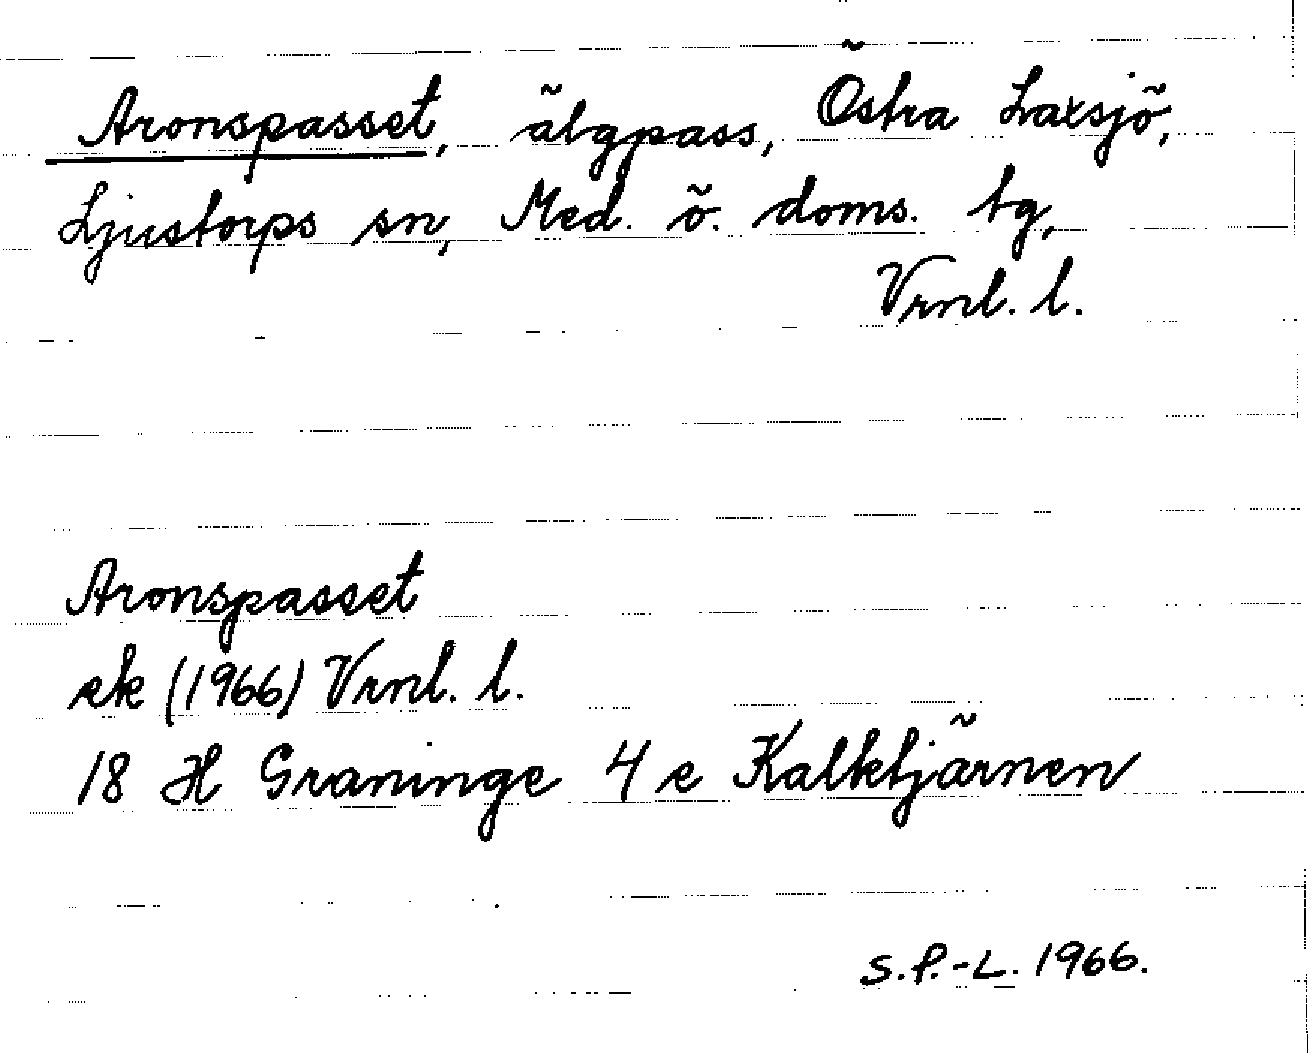 Aronspasset, älgpass, Östra Laxsjö,
Ljustorps sn, Med. ö. doms. tg,
Vrnl. l.
Aronspasset
ek (1966) Vrnl. l.
18 H Graninge 4 e Kalktjärnen
S.P.-L. 1966.